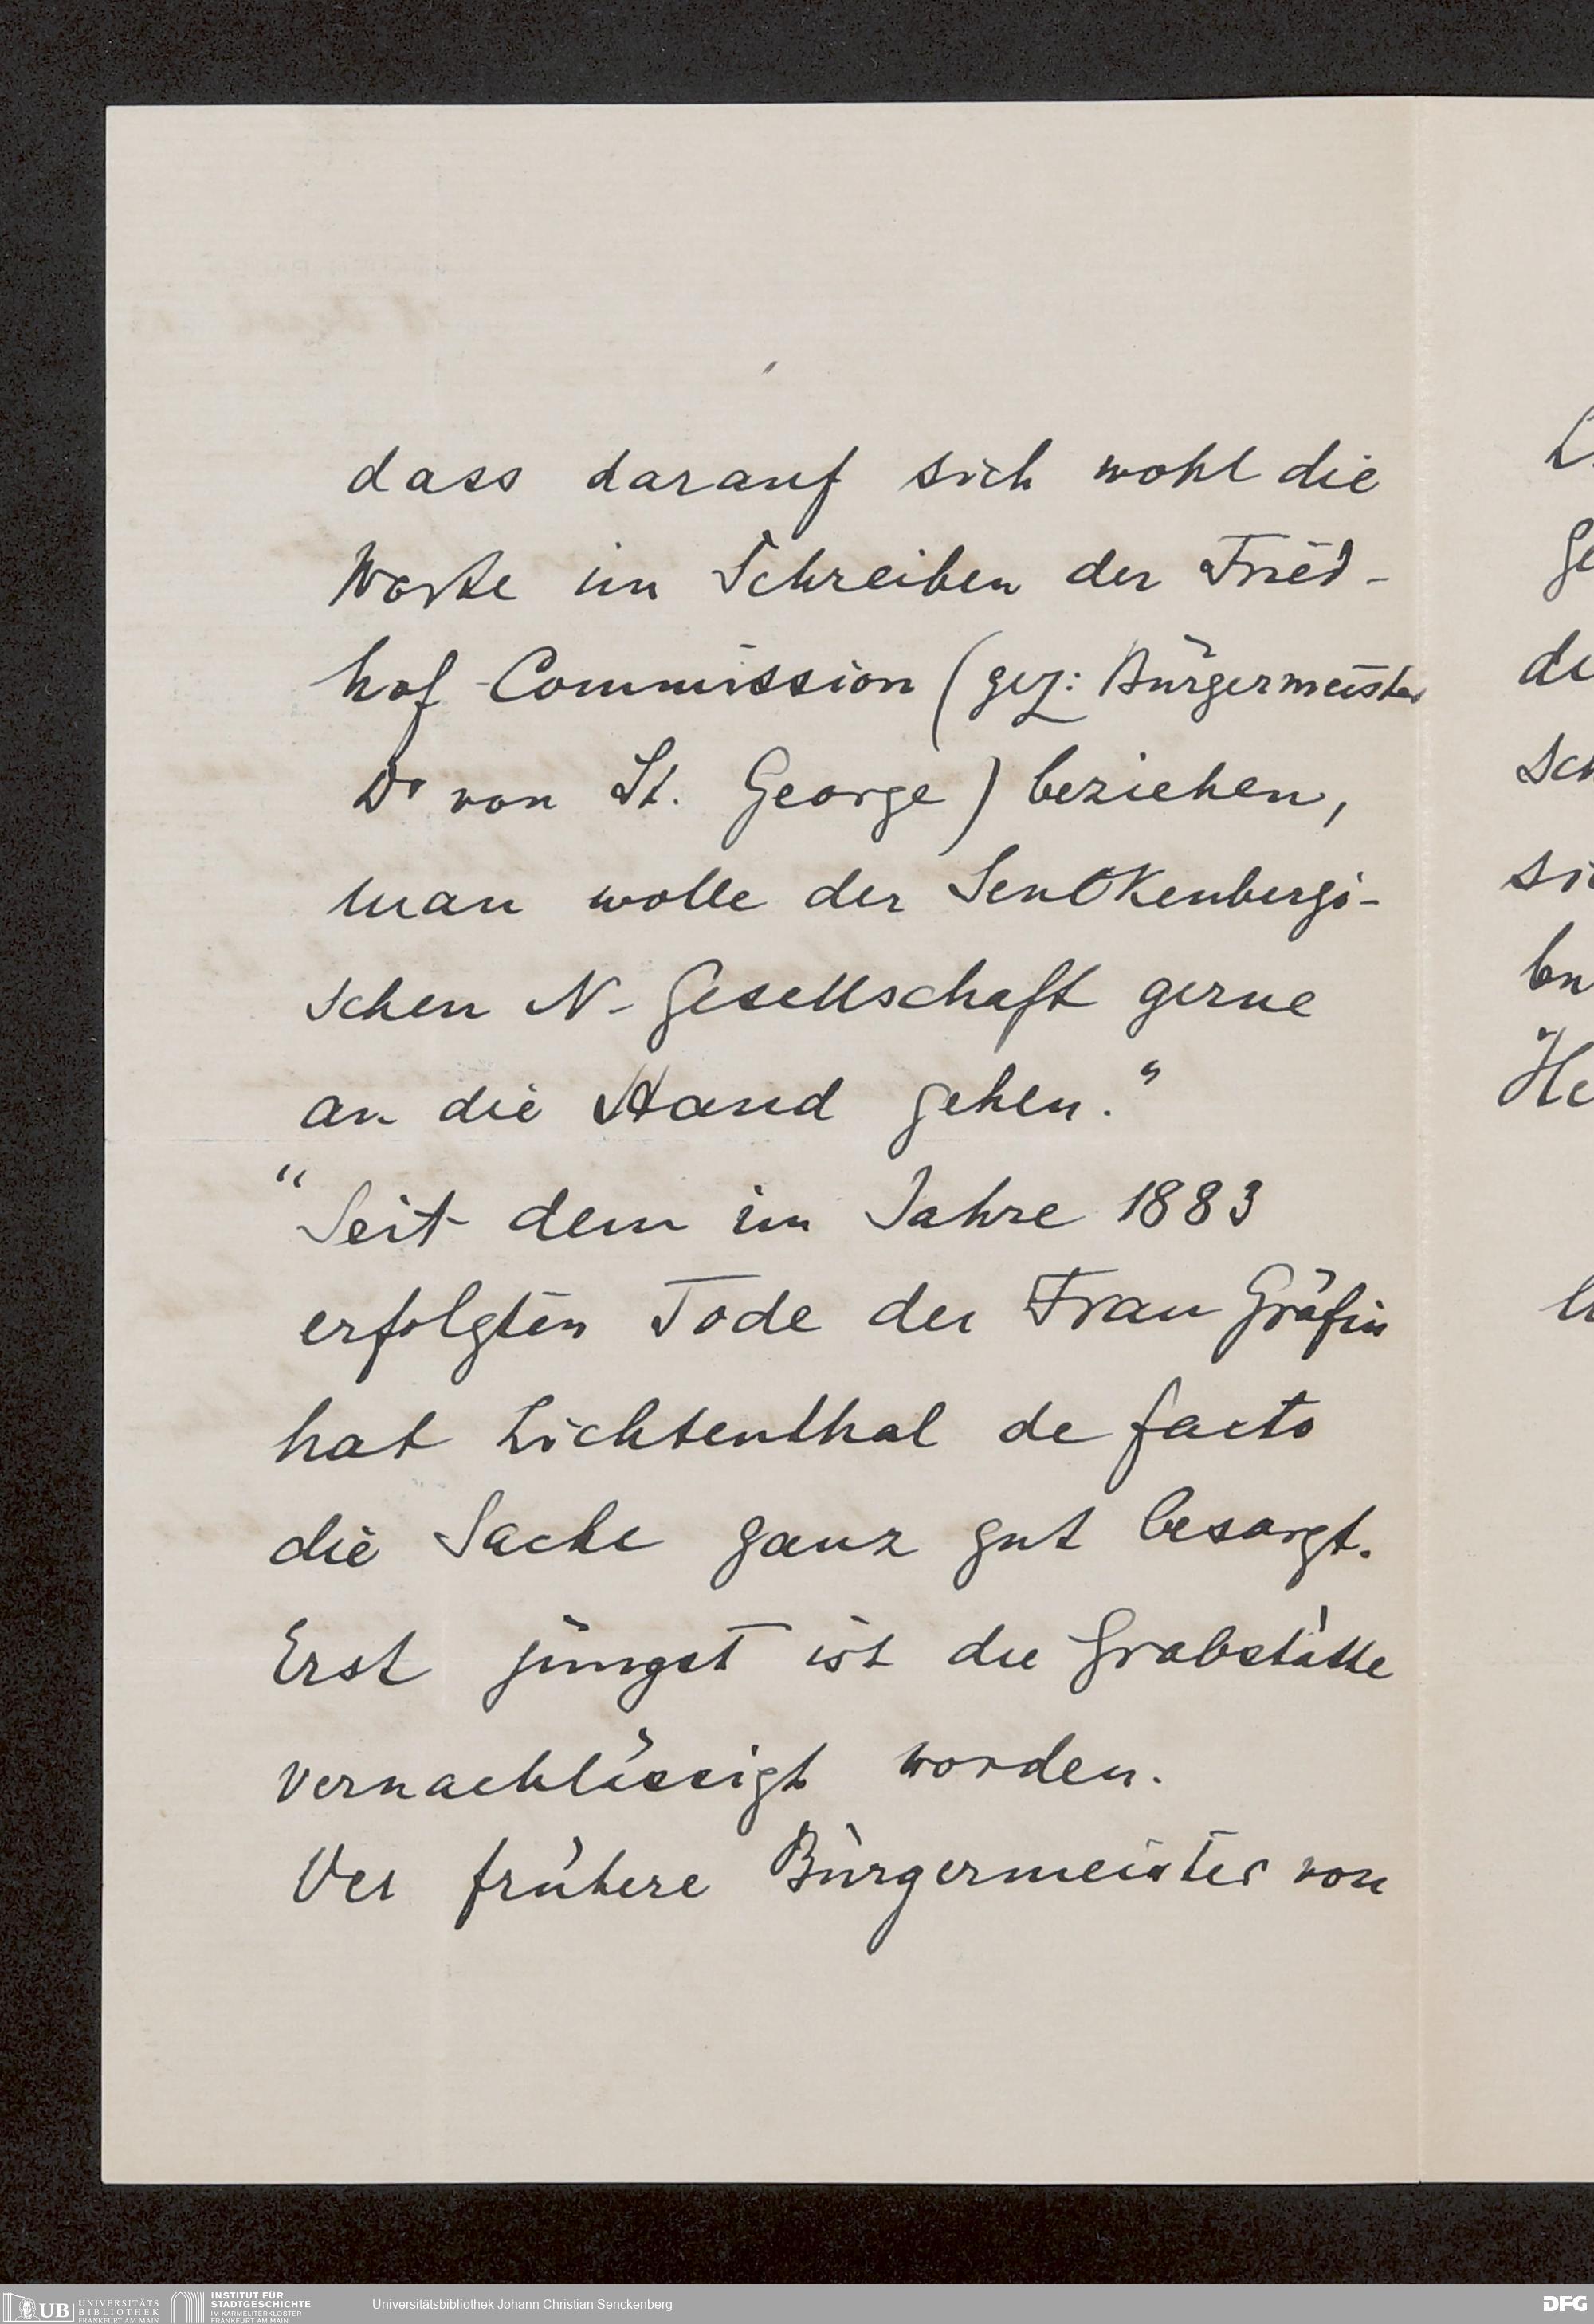 dass darauf sich wohl die
Worte im Schreiben der Fried-
hof-Commission (gez: Bürgermeister
Dr von St. George) beziehen,
man wolle der Senckenbergi-
schen N-Gesellschaft gerne
an die Hand gehen."
"Seit dem im Jahre 1883
erfolgten Tode der Frau Gräfin
hat Lichtenthal de facto
die Sache ganz gut besorgt.
Erst jüngst ist die Grabstätte
vernachlässigt worden.
Der frühere Bürgermeister von
ge
de
sch
sic
He
UB UNIVERSITÄTS
BIBLIOTHEK
FRANKFURT AM MAIN
INSTITUT FÜR
STADTGESCHICHTE
IM KARMELITERKLOSTER
FRANKFURT AM MAIN
Universitätsbibliothek Johann Christian Senckenberg
DFG